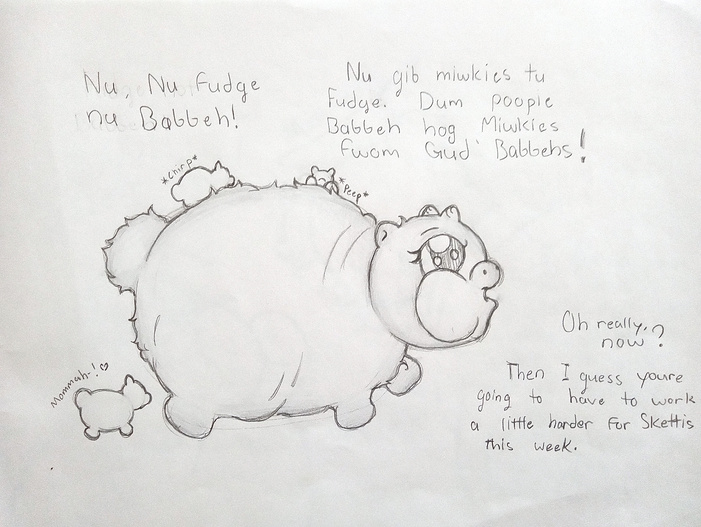 Nu, Nu Fudge
nu Babbeh!
Nu gib miwkies tu
Fudge. Dum poopie
Babbeh hog Miwkies
fwom Gud Babbehs!
*Chirp*
*Peep*
Mommah-!♡
Oh really,
now?
Then I guess youre
going to have to work
a little harder for Skettis
this week.